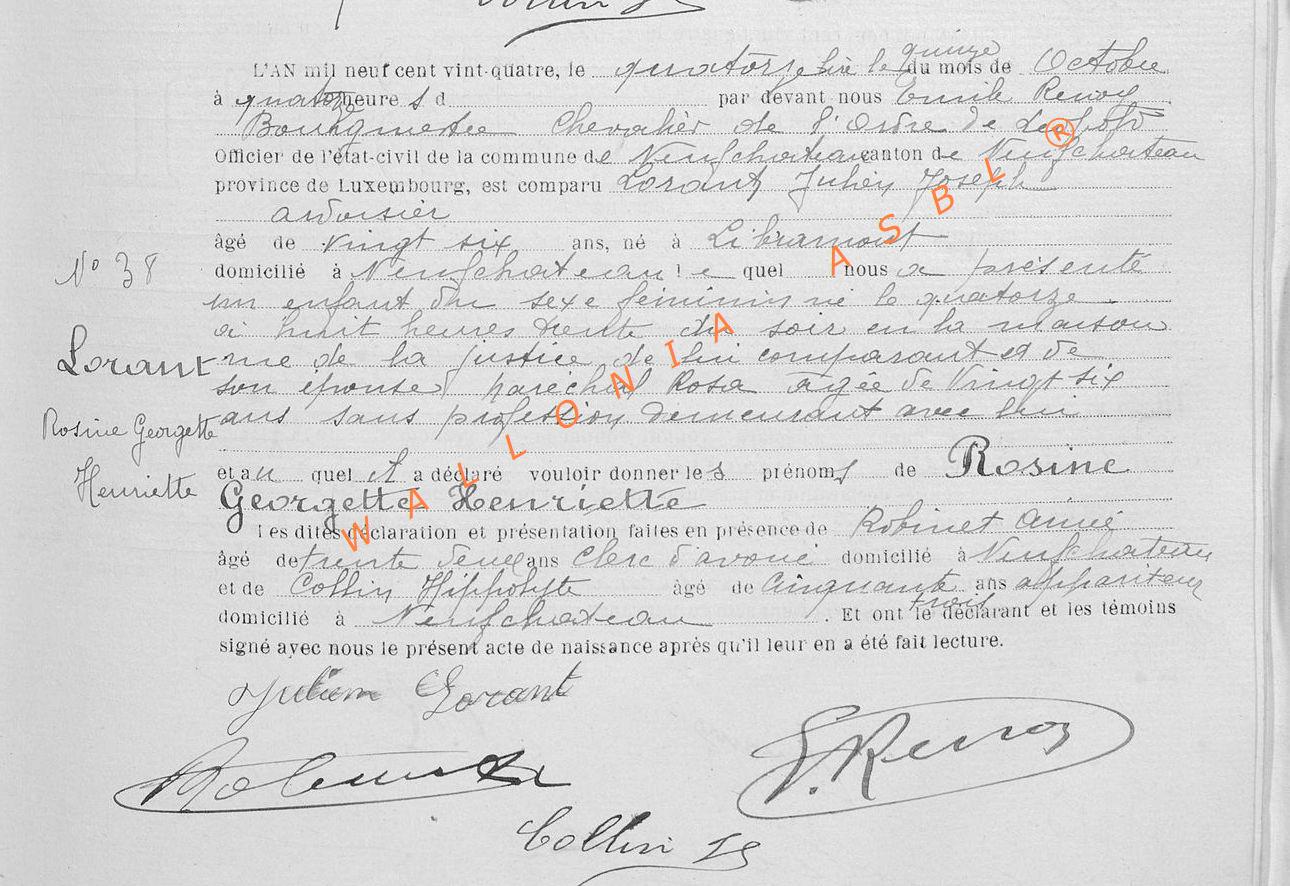 Collin
L'AN mil neuf cent vint-quatre, le quatorze lire le quinze du mois de Octobre
à quatorze heure s d par devant nous Emile Renoy
Bourgmestre Chevalier de l'Ordre de Léopold
Officier de l'état-civil de la commune de Neufchateau canton de Neufchateau
province de Luxembourg, est comparu Lorant Julien Joseph
ardoisier
âgé de vingt six ans, né à Libramont
domicilié à Neufchateau l e quel nous a présenté
un enfant du sexe féminin né le quatorze
à huit heures trente du soir en la maison
rue de la justice de lui comparant et de
son épouse Maréchal Rosa agée de Vingt six
ans sans profession demeurant avec lui
et au quel il a déclaré vouloir donner les prénoms de Rosine
Georgette Henriette
Les dites déclaration et présentation faites en présence de Robinet Aimé
âgé de trente deux ans clerc d'avoué domicilié à Neufchateau
et de Collin Hippolyte âgé de Cinquante trois ans appariteur
domicilié à Neufchateau . Et ont le déclarant et les témoins
signé avec nous le présent acte de naissance après qu'il leur en a été fait lecture.
N° 38
Lorant
Rosine Georgette
Henriette
Julien Lorant
E. Renoy
Collin
WALLONIA ASBL ®